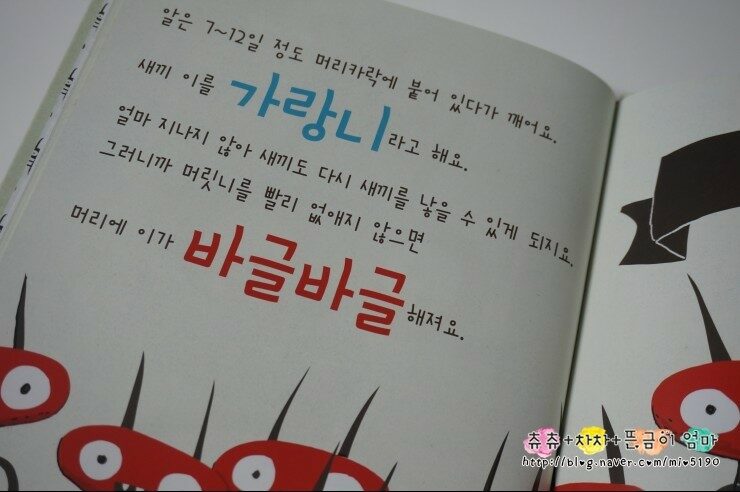 알은 7~12일 정도 머리카락에 붙어 있다가 깨어요.
새끼 이를 가랑니라고 해요.
얼마 지나지 않아 새끼도 다시 새끼를 낳을 수 있게 되지요.
그러니까 머릿니를 빨리 없애지 않으면
머리에 이가 바글바글해져요.
츄츄+차차+뜬금이 엄마
http://blog.naver.com/mi*5190